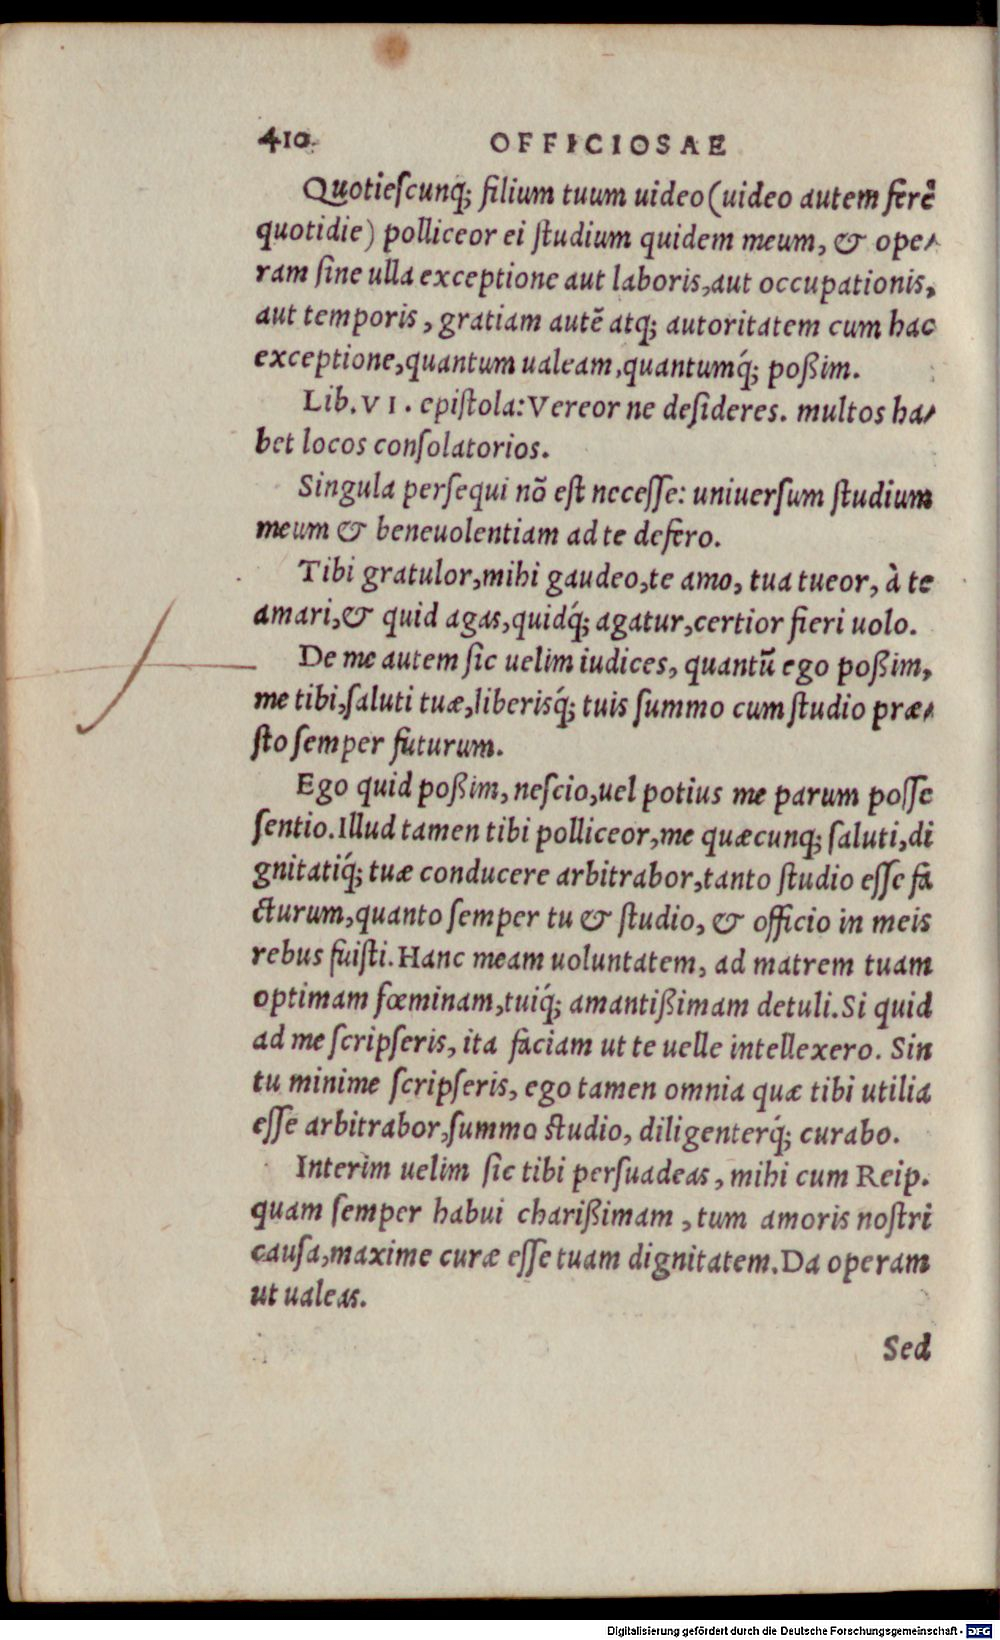 410 OFFICIOSAE
Quotieſcunq; filium tuum uideo (uideo autem ferè
quotidie) polliceor ei ſtudium quidem meum, & ope-
ram ſine ulla exceptione aut laboris, aut occupationis,
aut temporis, gratiam autẽ atq; autoritatem cum hac
exceptione, quantum ualeam, quantumq́; poßim.
Lib. VI. epiſtola: Vereor ne deſideres. multos ha-
bet locos conſolatorios.
Singula perſequi nõ eſt neceſſe: uniuerſum ſtudium
meum & beneuolentiam ad te defero.
Tibi gratulor, mihi gaudeo, te amo, tua tueor, à te
amari, & quid agas, quidq́; agatur, certior fieri uolo.
De me autem ſic uelim iudices, quantũ ego poßim,
me tibi, ſaluti tuæ, liberisq́; tuis ſummo cum ſtudio præ-
ſto ſemper futurum.
Ego quid poßim, neſcio, uel potius me parum poſſe
ſentio. Illud tamen tibi polliceor, me quæcunq; ſaluti, di
gnitatiq́; tuæ conducere arbitrabor, tanto ſtudio eſſe fa
cturum, quanto ſemper tu & ſtudio, & officio in meis
rebus fuiſti. Hanc meam uoluntatem, ad matrem tuam
optimam fœminam, tuiq́; amantißimam detuli. Si quid
ad me ſcripſeris, ita faciam ut te uelle intellexero. Sin
tu minime ſcripſeris, ego tamen omnia quæ tibi utilia
eſſe arbitrabor, ſummo ſtudio, diligenterq́; curabo.
Interim uelim ſic tibi perſuadeas, mihi cum Reip.
quam ſemper habui charißimam, tum amoris noſtri
cauſa, maxime curæ eſſe tuam dignitatem. Da operam
ut ualeas.
Sed
Digitalisierung gefördert durch die Deutsche Forschungsgemeinschaft - DFG